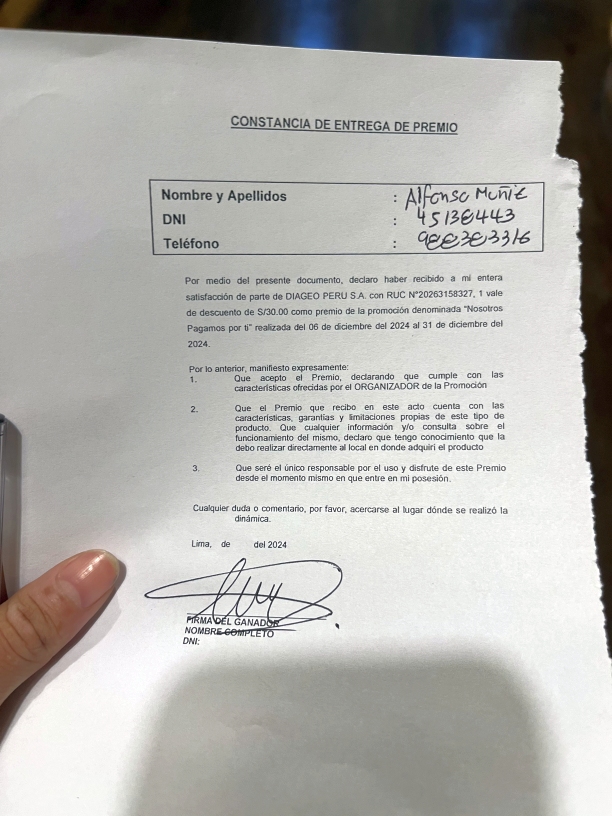 CONSTANCIA DE ENTREGA DE PREMIO
Nombre y Apellidos : Alfonso Muñiz
DNI : 45138443
Teléfono :
Por medio del presente documento, declaro haber recibido a mi entera
satisfacción de parte de DIAGEO PERU S.A. con RUC N°20263158327, 1 vale
de descuento de S/30.00 como premio de la promoción denominada "Nosotros
Pagamos por ti" realizada del 06 de diciembre del 2024 al 31 de diciembre del
2024.
Por lo anterior, manifiesto expresamente:
1. Que acepto el Premio, declarando que cumple con las
características ofrecidas por el ORGANIZADOR de la Promoción
2. Que el Premio que recibo en este acto cuenta con las
características, garantías y limitaciones propias de este tipo de
producto. Que cualquier información y/o consulta sobre el
funcionamiento del mismo, declaro que tengo conocimiento que la
debo realizar directamente al local en donde adquirí el producto
3. Que seré el único responsable por el uso y disfrute de este Premio
desde el momento mismo en que entre en mi posesión.
Cualquier duda o comentario, por favor, acercarse al lugar dónde se realizó la
dinámica.
Lima, de del 2024
FIRMA DEL GANADOR
NOMBRE COMPLETO
DNI: